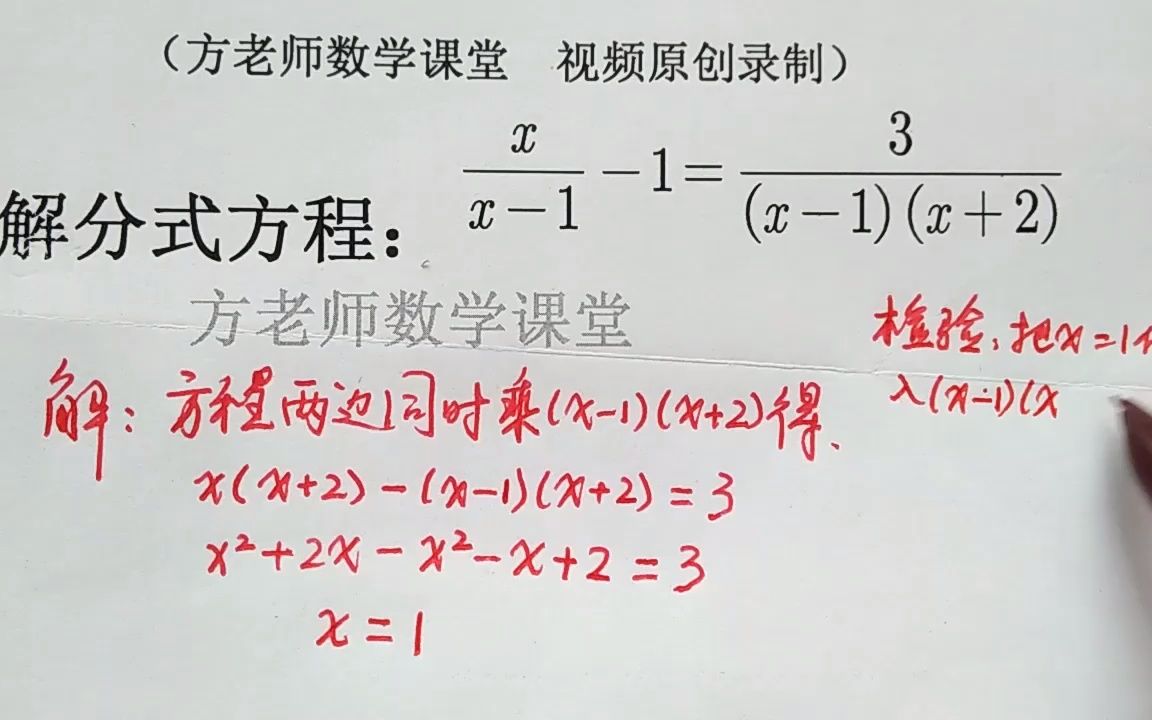 (方老师数学课堂 视频原创录制)
解分式方程: x/(x-1) -1= 3/((x-1)(x+2))
方老师数学课堂
解: 方程两边同时乘(x-1)(x+2)得、
x(x+2)-(x-1)(x+2)=3
x²+2x-x²-x+2=3
x=1
检验:把x=1代
入(x-1)(x